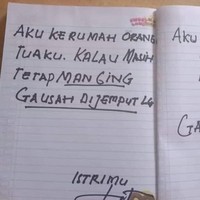 AKU KERUMAH ORANG
TUAKU. KALAU MASIH
TETAP MANGING
GAUSAH DIJEMPUT LG
ISTRIMU
AKU
GA